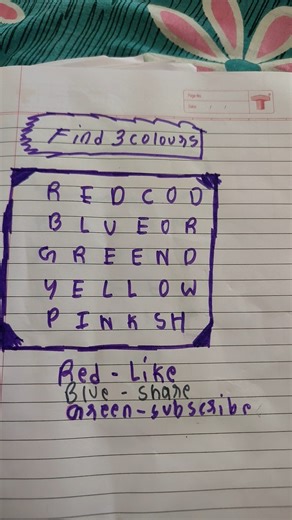 Find 3 colours
R E D C O D
B L U E O R
G R E E N D
Y E L L O W
P I N K S H
Red - Like
Blue - share
Green - subscribe